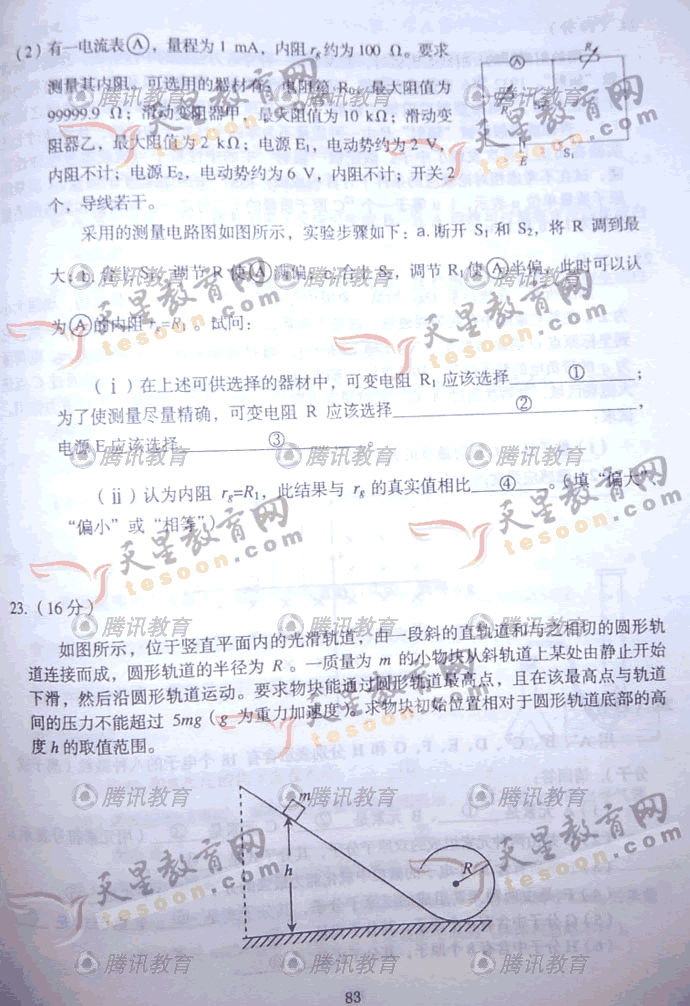 (2)有一电流表Ⓐ，量程为1 mA，内阻rg约为100 Ω。要求
测量其内阻。可选用的器材有：电阻箱R0，最大阻值为
99999.9 Ω；滑动变阻器甲，最大阻值为10 kΩ；滑动变
阻器乙，最大阻值为2 kΩ；电源E1，电动势约为2 V，
内阻不计；电源E2，电动势约为6 V，内阻不计；开关2
个，导线若干。
采用的测量电路图如图所示，实验步骤如下：a.断开S1和S2，将R调到最
大；b.合上S1，调节R使Ⓐ满偏；c.合上S2，调节R1使Ⓐ半偏，此时可以认
为Ⓐ的内阻rg=R1。试问：
(ⅰ)在上述可供选择的器材中，可变电阻R1应该选择①；
为了使测量尽量精确，可变电阻R应该选择②，
电源E应该选择③。
(ⅱ)认为内阻rg=R1，此结果与rg的真实值相比④。(填“偏大”、
“偏小”或“相等”)
23.(16分)
如图所示，位于竖直平面内的光滑轨道，由一段斜的直轨道和与之相切的圆形轨
道连接而成，圆形轨道的半径为R。一质量为m的小物块从斜轨道上某处由静止开始
下滑，然后沿圆形轨道运动。要求物块能通过圆形轨道最高点，且在该最高点与轨道
间的压力不能超过5mg(g为重力加速度)。求物块初始位置相对于圆形轨道底部的高
度h的取值范围。
m
h
R
83